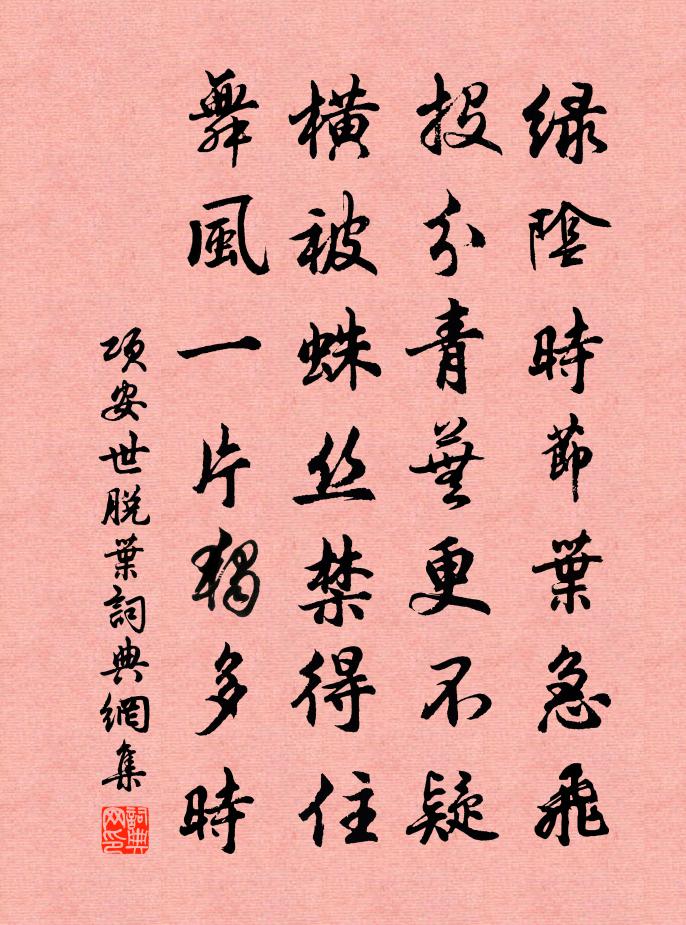 绿陰時節葉急飛
投分青蕪更不疑
横被蛛丝禁得住
舞風一片獨多時
项安世脱葉詞典網集
詞典网印